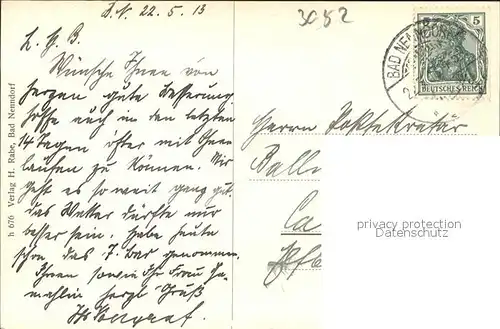 B. N. 22. 5. 13
L. H. B.
Wünsche Ihnen von
herzen gute Besserung
hoffe auch in den letzten
14 Tagen öfter mit Ihnen
laufen zu können. Mir
geht es so weit ganz gut.
das Wetter dürfte nur
besser sein. habe heute
schon das 7. Bad genommen.
Ihnen sowie Ihr Frau Ge-
mahlin herzl Gruß
h 676 Verlag H. Rabe, Bad Nenndorf
3052
BAD NENNDORF
5
DEUTSCHES REICH
Herrn Postsekretär
Ball
Ca
privacy protection
watermark